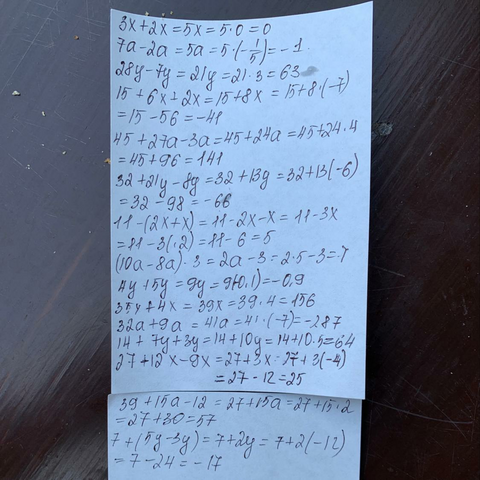 3x+2x=5x=5·0=0
7a-2a=5a=5·(-1/5)=-1.
28y-7y=21y=21·3=63
15+6x+2x=15+8x=15+8·(-7)
=15-56=-41
45+27a-3a=45+24a=45+24·4
=45+96=141
32+21y-8y=32+13y=32+13(-6)
=32-98=-66
11-(2x+x)=11-2x-x=11-3x
=11-3(·2)=11-6=5
(10a-8a)·3=2a-3=2·5-3=7
4y+5y=9y=9(-0,1)=-0,9
35x+4x=39x=39·4=156
32a+9a=41a=41·(-7)=-287
14+7y+3y=14+10y=14+10·5=64
27+12x-9x=27+3x=27+3(-4)
=27-12=25
39+15a-12=27+15a=27+15·2
=27+30=57
7+(5y-3y)=7+2y=7+2(-12)
=7-24=-17